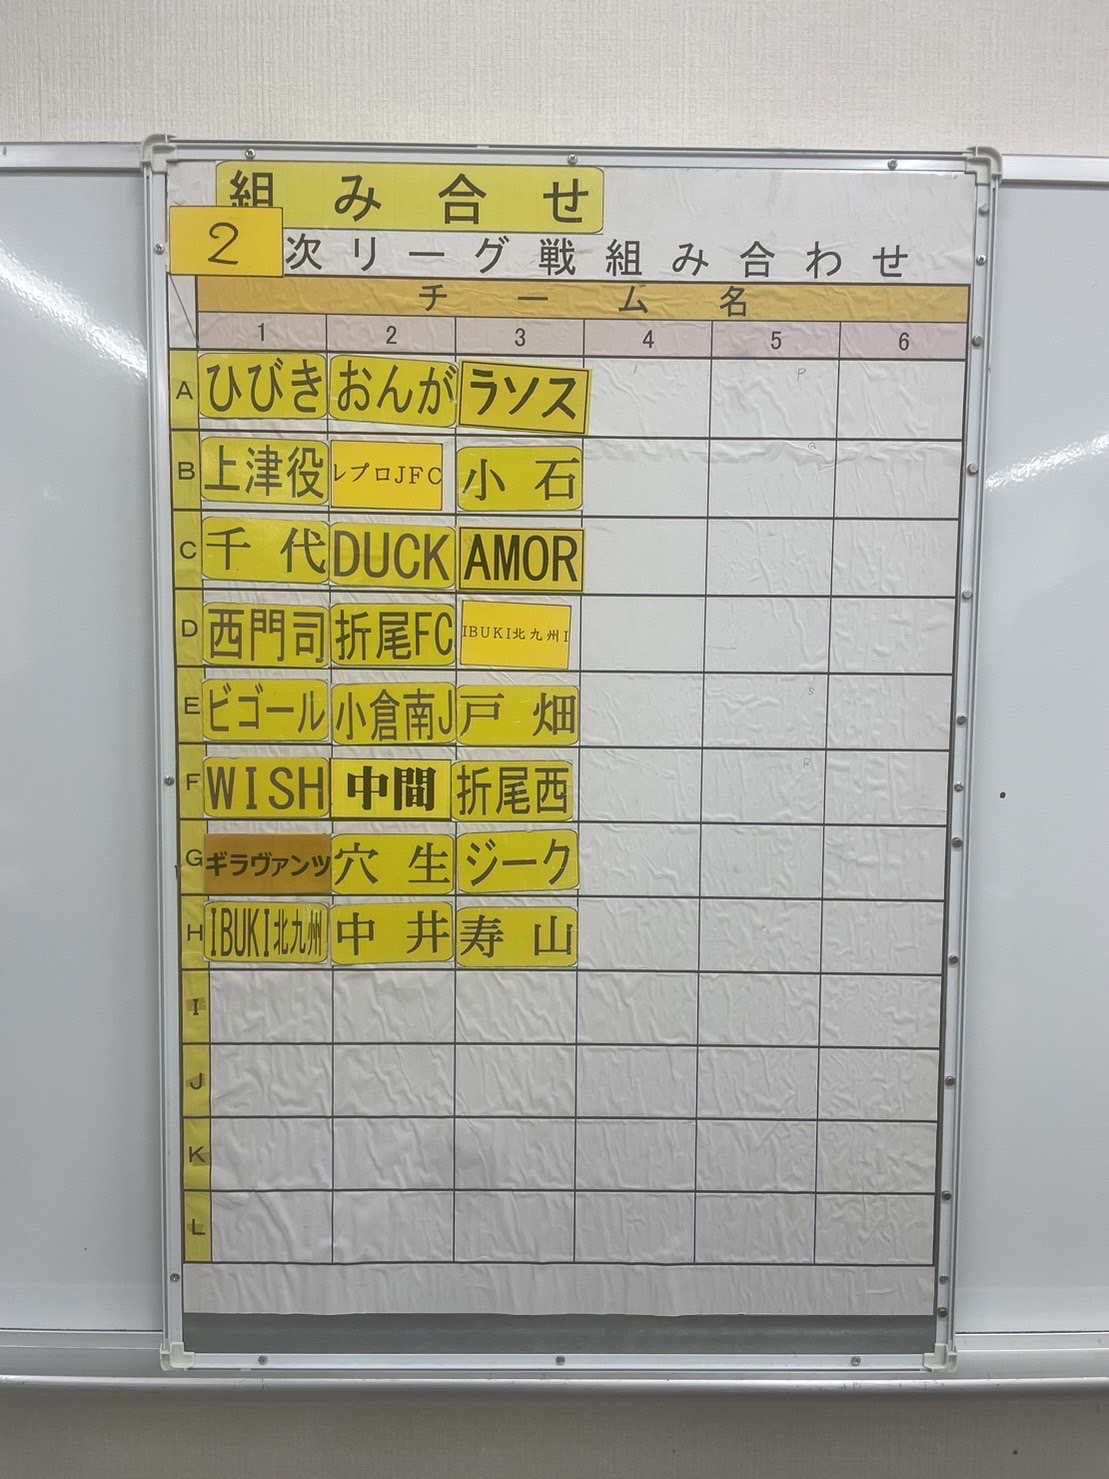 組み合せ
2次リーグ戦組み合わせ
チーム名
1 2 3 4 5 6
A ひびき おんが ラソス
B 上津役 レプロJFC 小石
C 千代 DUCK AMOR
D 西門司 折尾FC IBUKI北九州I
E ビゴール 小倉南J 戸畑
F WISH 中間 折尾西
G ギラヴァンツ 穴生 ジーク
H IBUKI北九州 中井 寿山
I
J
K
L